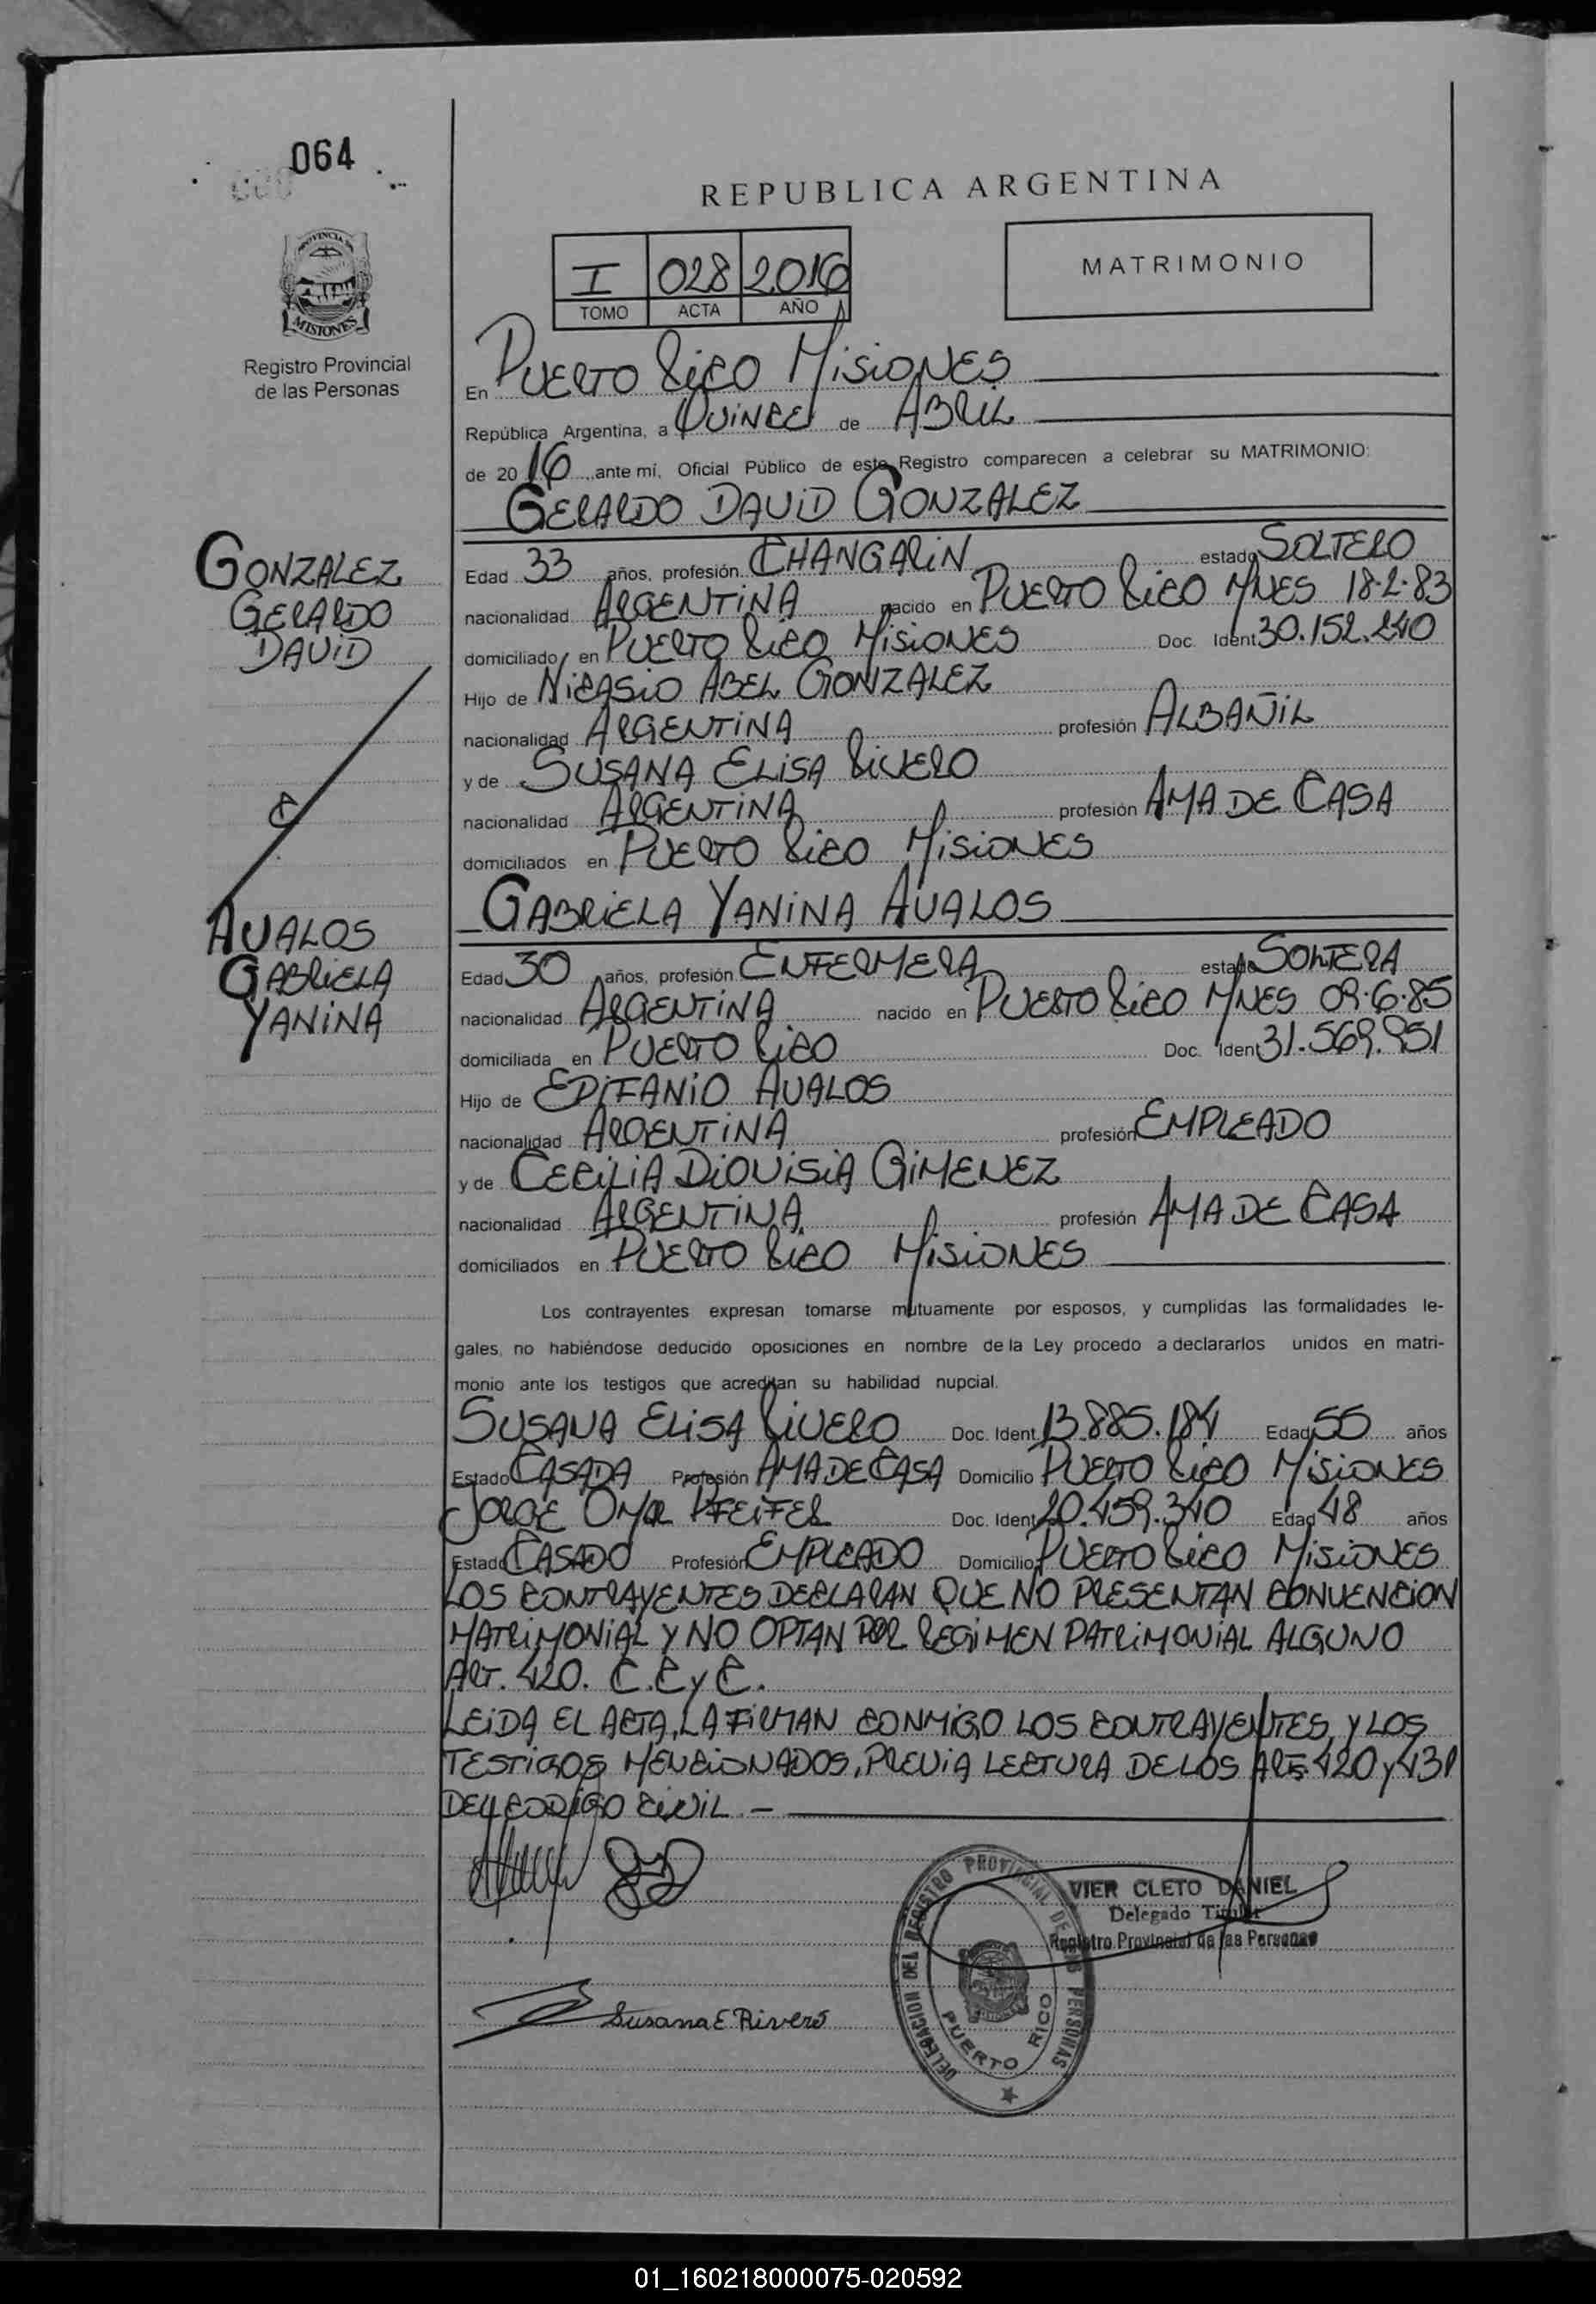 064
PROVINCIA DE
MISIONES
Registro Provincial
de las Personas
REPUBLICA ARGENTINA
I 028 2.016
TOMO ACTA AÑO
MATRIMONIO
En PUERTO RICO MISIONES
República Argentina, a QUINCE de ABRIL
de 20 16 ante mí, Oficial Público de este Registro comparecen a celebrar su MATRIMONIO:
GERARDO DAVID GONZALEZ
GONZALEZ
GERARDO
DAVID
Edad 33 años, profesión CHANGARIN estado SOLTERO
nacionalidad ARGENTINA nacido en PUERTO RICO MNES 18-2-83
domiciliado en PUERTO RICO MISIONES Doc. Ident 30.152.240
Hijo de NICASIO ABEL GONZALEZ
nacionalidad ARGENTINA profesión ALBAÑIL
y de SUSANA ELISA RIVERO
nacionalidad ARGENTINA profesión AMA DE CASA
domiciliados en PUERTO RICO MISIONES
GABRIELA YANINA AVALOS
AVALOS
GABRIELA
YANINA
Edad 30 años, profesión ENFERMERA estado SOLTERA
nacionalidad ARGENTINA nacido en PUERTO RICO MNES 09-6-85
domiciliada en PUERTO RICO Doc. Ident 31.569.951
Hijo de EPIFANIO AVALOS
nacionalidad ARGENTINA profesión EMPLEADO
y de CECILIA DIONISIA GIMENEZ
nacionalidad ARGENTINA profesión AMA DE CASA
domiciliados en PUERTO RICO MISIONES
Los contrayentes expresan tomarse mutuamente por esposos, y cumplidas las formalidades le-
gales, no habiéndose deducido oposiciones en nombre de la Ley procedo a declararlos unidos en matri-
monio ante los testigos que acreditan su habilidad nupcial.
SUSANA ELISA RIVERO Doc. Ident 13.885.184 Edad 55 años
Estado CASADA Profesión AMA DE CASA Domicilio PUERTO RICO MISIONES
JORGE OMAR PFEIFER Doc. Ident 20.459.340 Edad 48 años
Estado CASADO Profesión EMPLEADO Domicilio PUERTO RICO MISIONES
LOS CONTRAYENTES DECLARAN QUE NO PRESENTAN CONVENCION
MATRIMONIAL Y NO OPTAN POR REGIMEN PATRIMONIAL ALGUNO
ART. 420. C.C y C.
LEIDA EL ACTA, LA FIRMAN CONMIGO LOS CONTRAYENTES, Y LOS
TESTIGOS MENCIONADOS, PREVIA LECTURA DE LOS ARTS 420 y 431
DEL CODIGO CIVIL.-
VIER CLETO DANIEL
Delegado Titular
Registro Provincial de las Personas
DELEGACION DEL REGISTRO PROVINCIAL DE LAS PERSONAS
PUERTO RICO
Susana E. Rivero
01_160218000075-020592